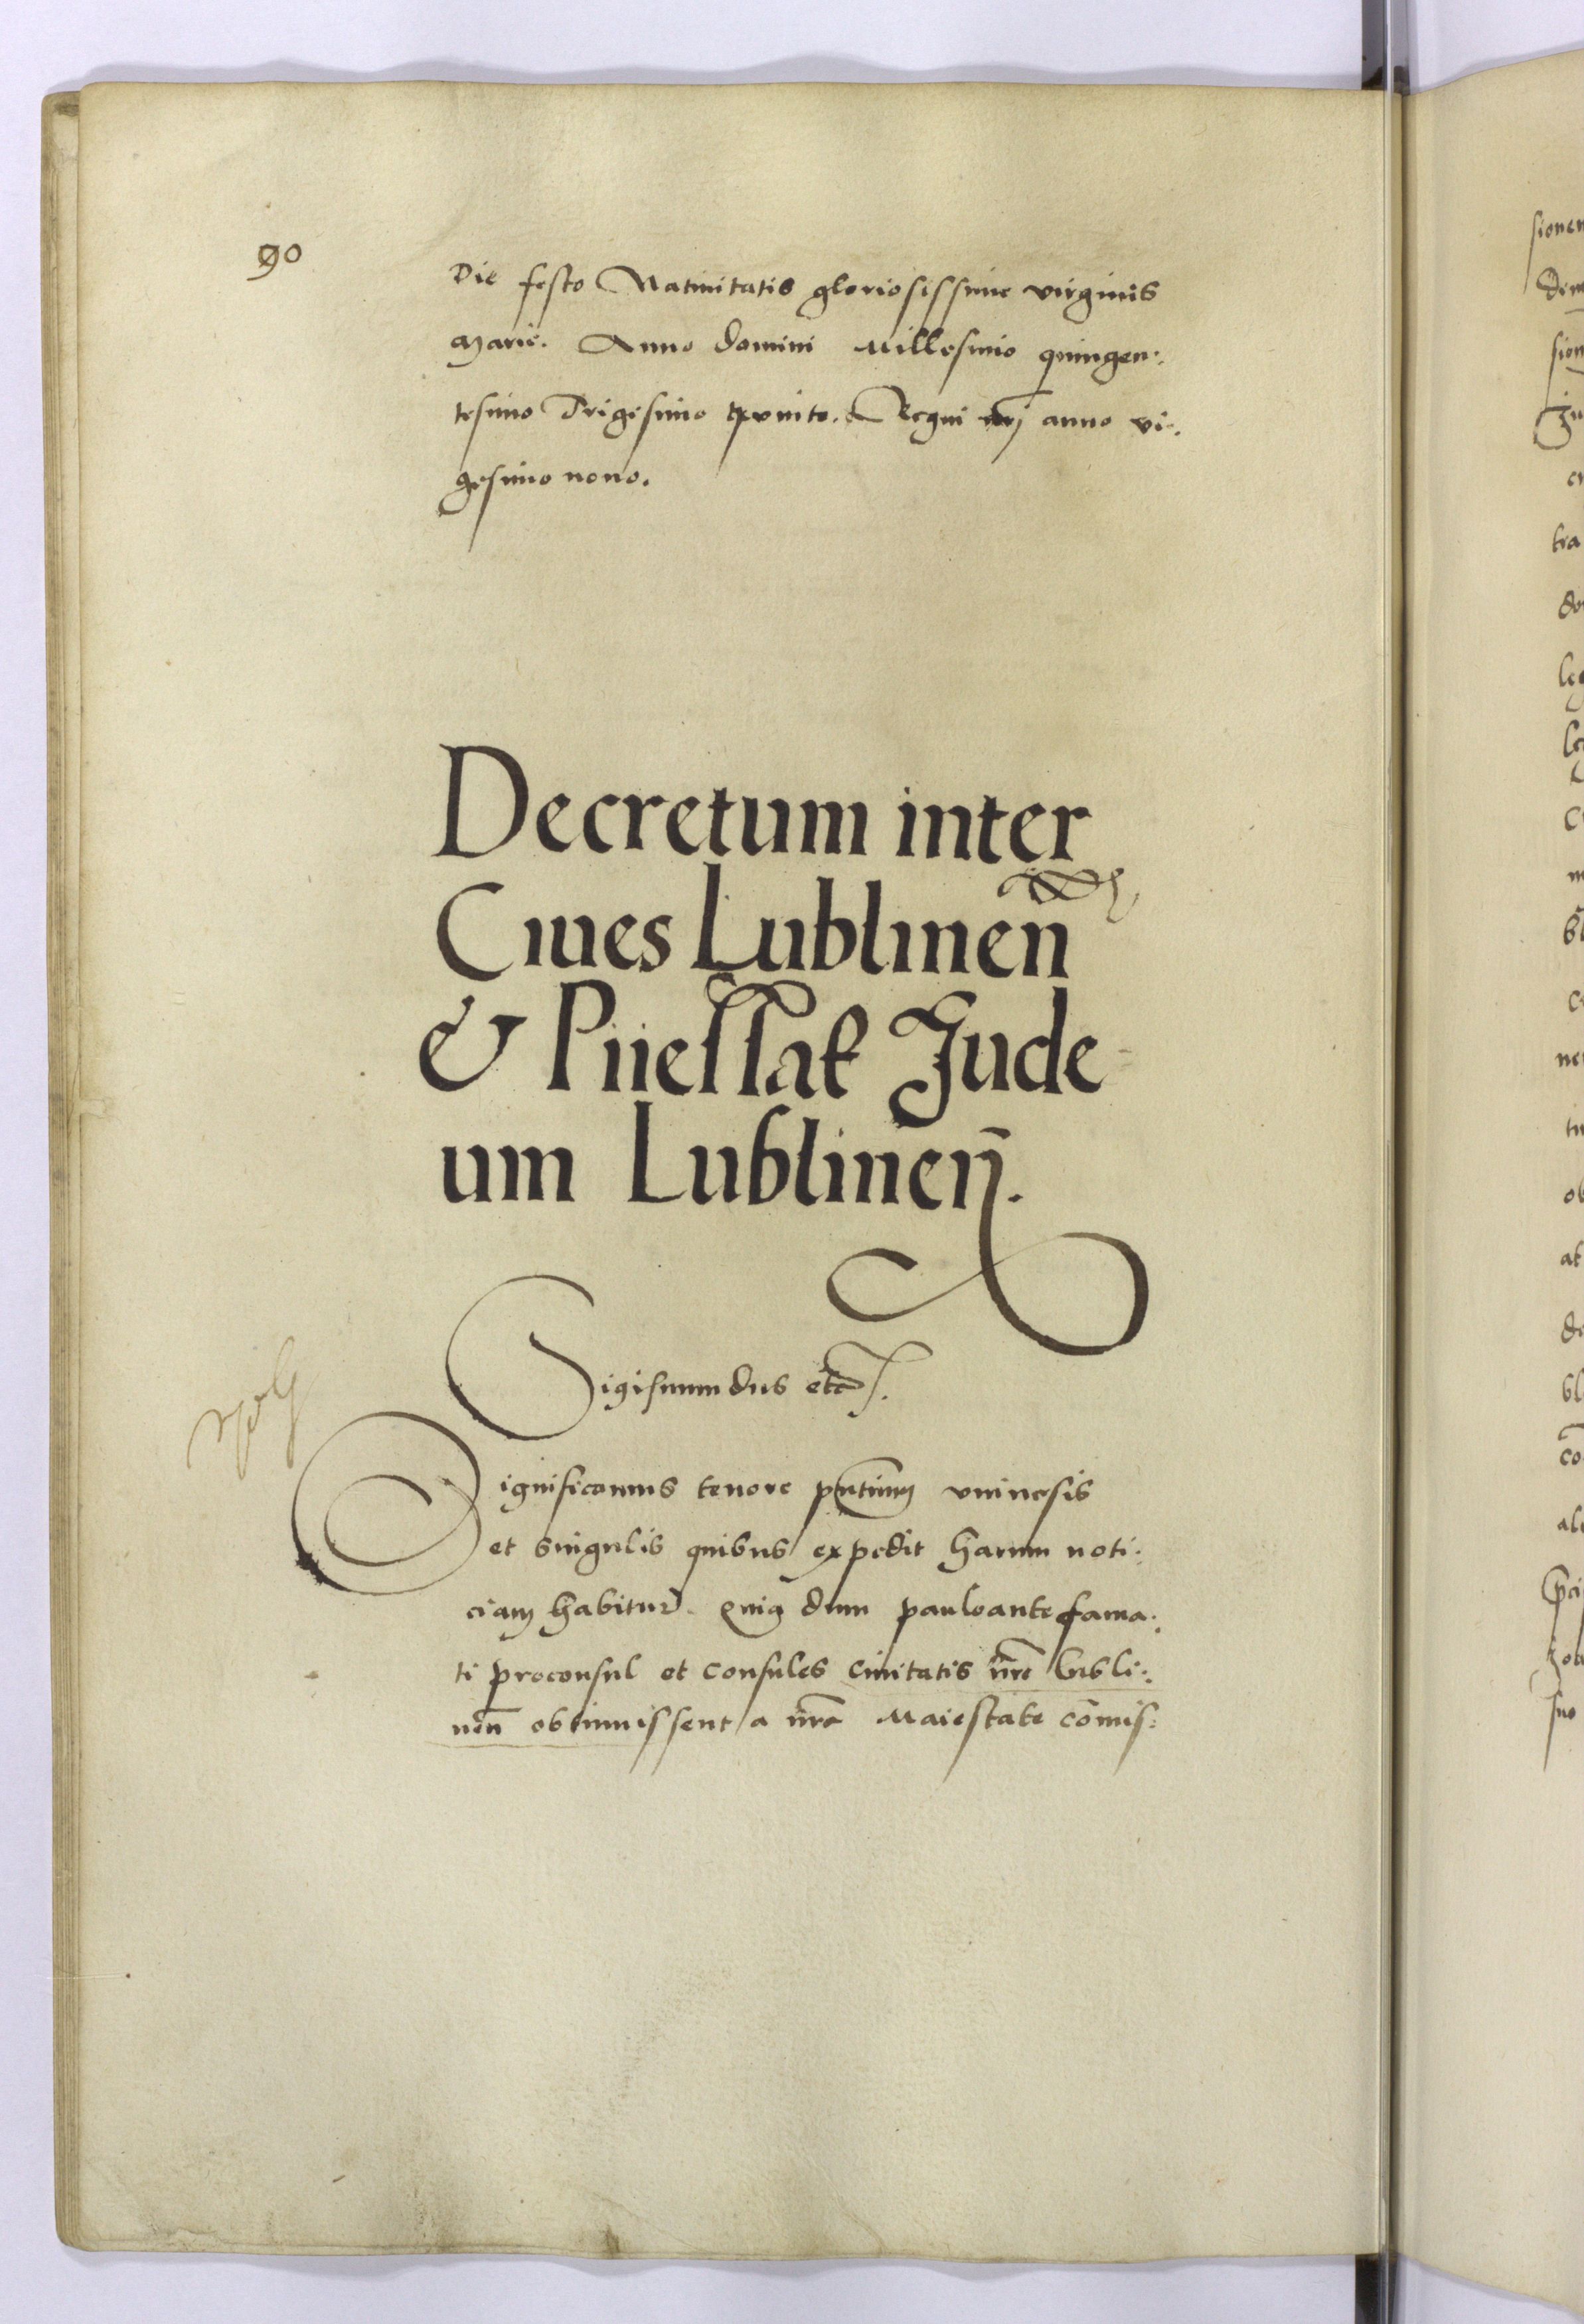 90
Die festo Natiuitatis gloriosissime virginis
Marie. Anno domini Millesimo quingen:
tesimo Trigesimo quinto. Regni nri anno vi:
gesimo nono.
Decretum inter
Ciues Lublinen̄
& Piiessak Jude
um Lublinen̄.
Sigismundus etc.
Significamus tenore pn̄tium vniuersis
et singulis quibus expedit harum noti:
ciam habitur̄. Quia dum pauloante fama:
ti proconsul et consules ciuitatis nr̄e Lubli:
nen̄ obtinuissent a nr̄a Maiestate com̄is:
sionem